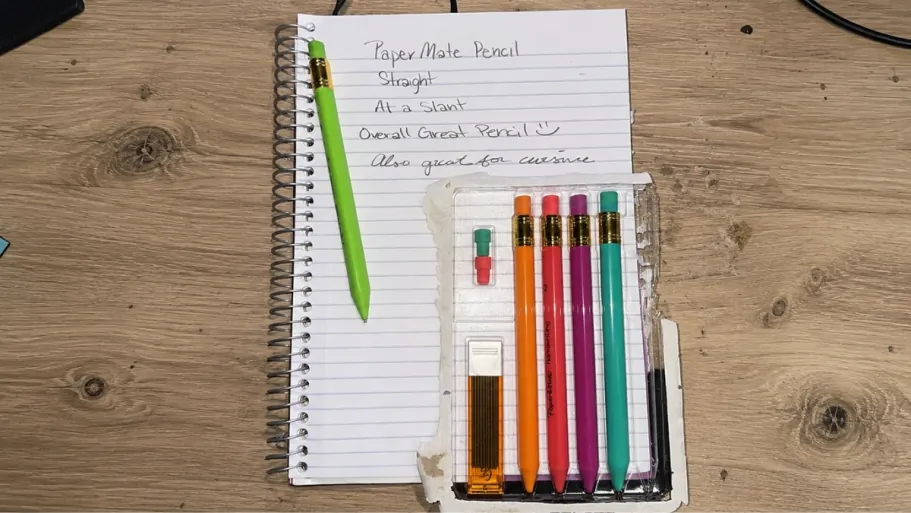 Paper Mate Pencil
Straight
At a Slant
Overall Great Pencil
Also great for cursive